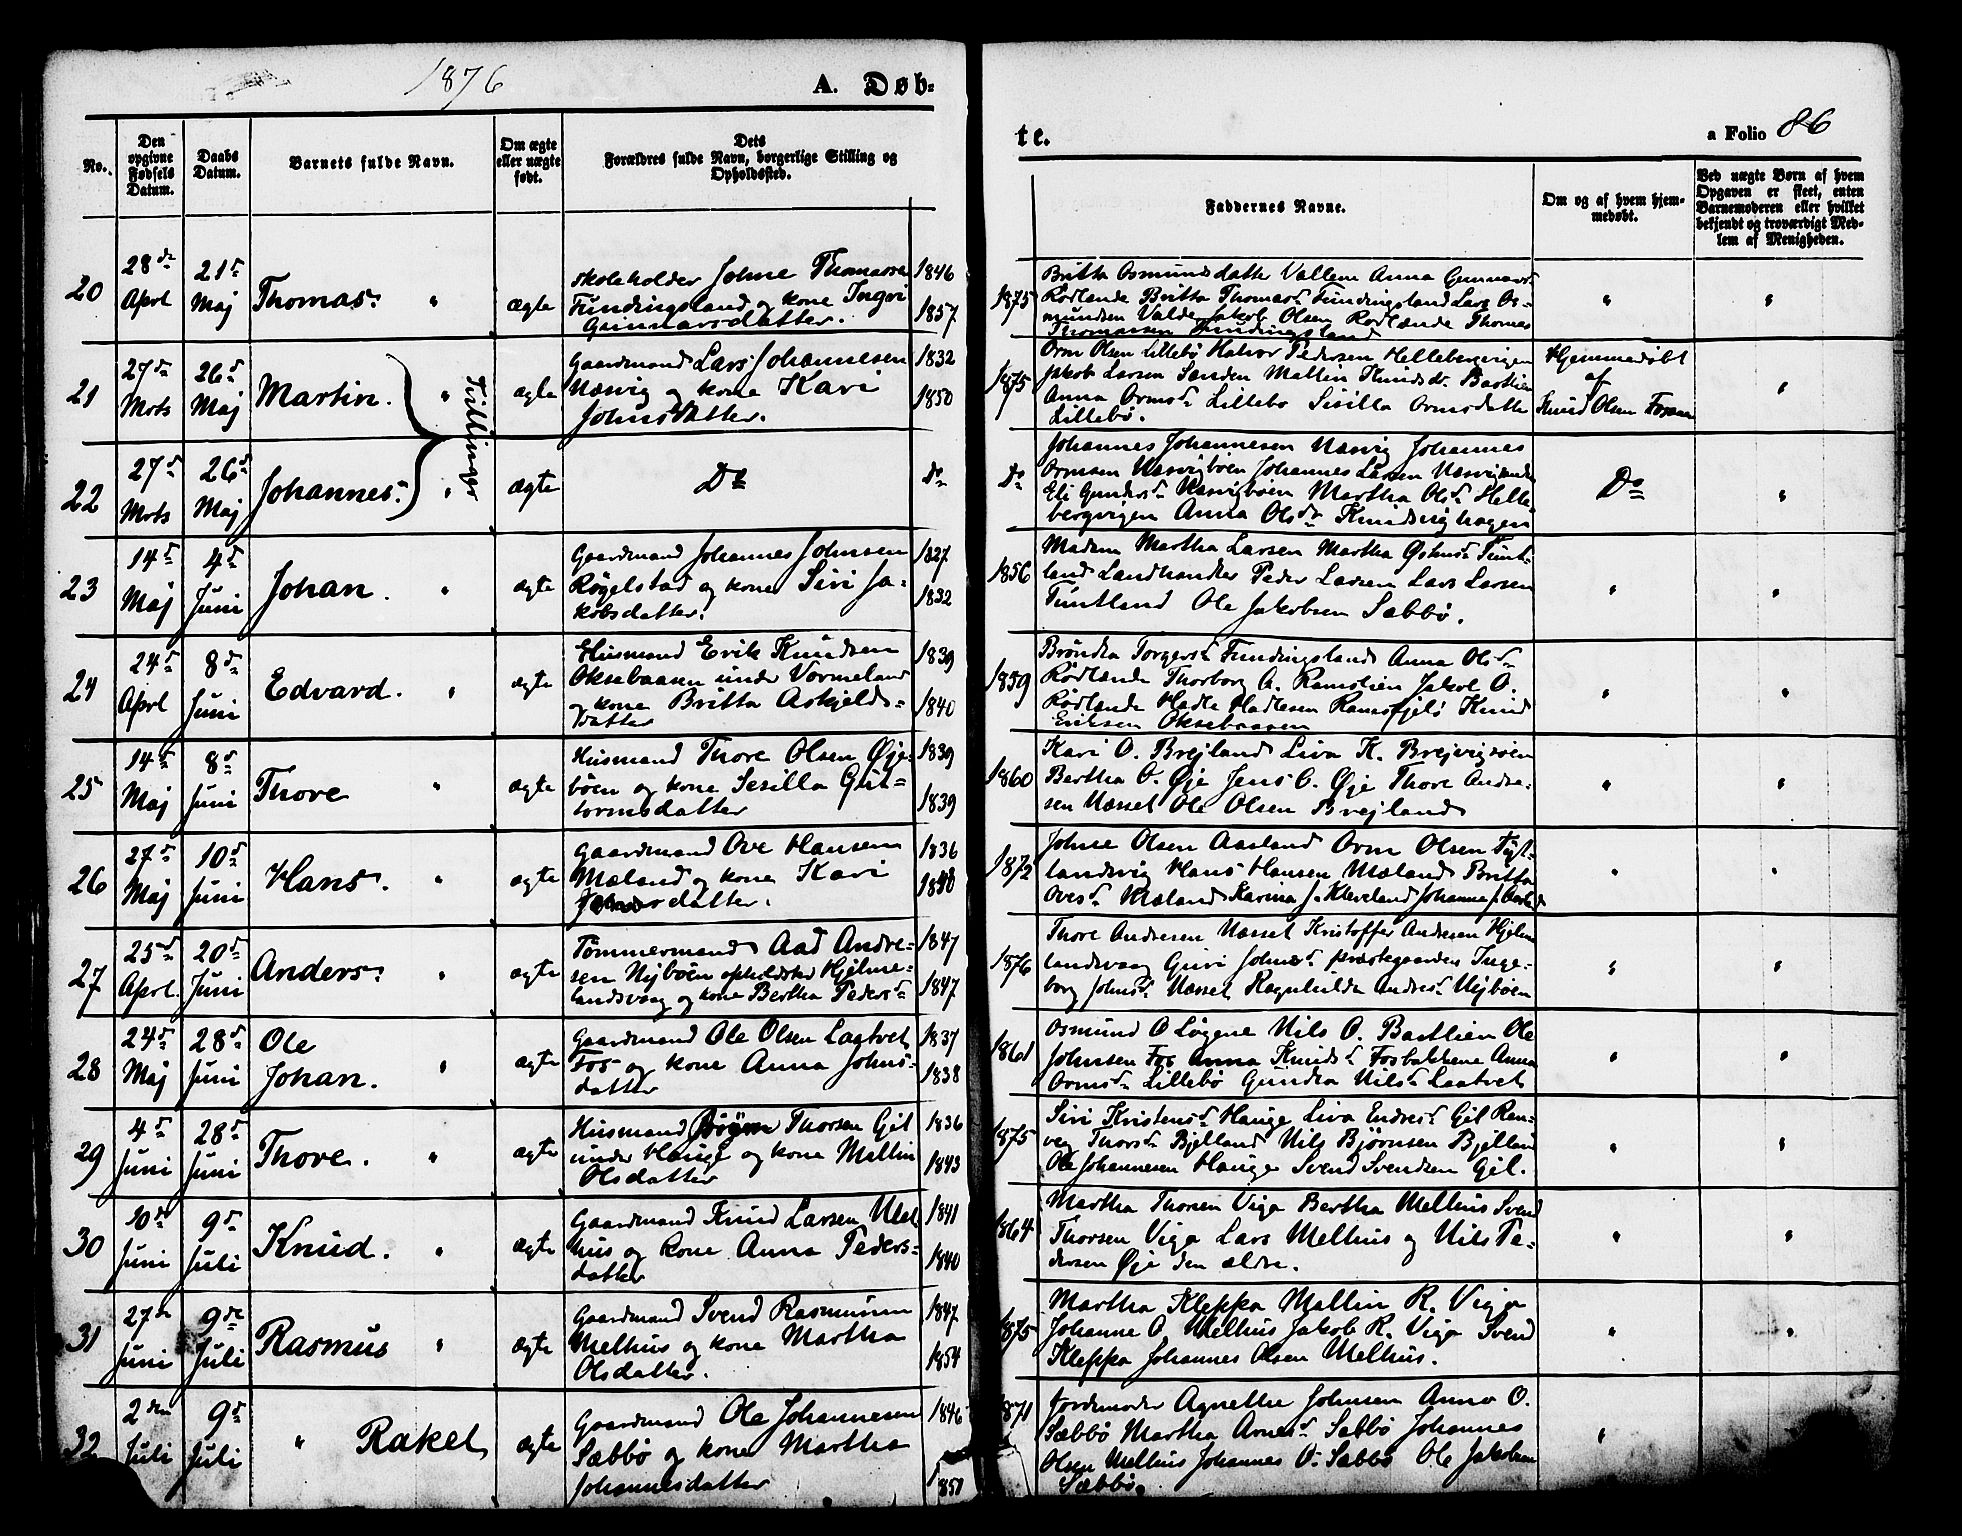 1876
A. Døb-
te.
a Folio 86
No.
Den opgivne Fødsels Datum.
Daabs Datum.
Barnets fulde Navn.
Om ægte eller uægte født.
Dets
Forældres fulde Navn, borgerlige Stilling og
Opholdssted.
Faddernes Navne.
Om og af hvem hjem-
medøbt.
Ved uægte Børn af hvem
Opgaven er skeet, enten
Barnemoderen eller hvilket
bekjendt og troværdigt Med-
lem af Menigheden.
20
28de Aprl
21d Maj
Thomas.
ægte
Skoleholder Johne Thomassen
Fundingsland og kone Ingri
Gunnarsdatter.
1846
1857
1875
Britta Osmundsdatter Vallem Anna Gunnars
Rødlände Britta Thomasd. Fundingsland Lars Os-
mundsen Valde Jakob Olsen Rødlænde Thomas
Thomassen Fundingsland
21
27de Mrts
26d Maj
Martin.
Tvillinge
ægte
Gaardmand Lars Johannesen
Næsvig og kone Kari
Johnsdatter.
1832
1850
1875
Orm Olsen Lillebø Halvor Pedersen Hellebergvigen
Jakob Larsen Sanden Mallin Knudsdr. Bastlien
Anna Ormsd. Lillebø Sisilla Ormsdatter
Lillebø.
Hjemmedøbt
af
Knud Olsen Fossan
22
27d Mrts
26d Maj
Johannes.
ægte
Do
do
Do
Johannes Johannesen Næsvig Johannes
Ormsen Næsvigbøen Johannes Larsen
Eli Gundersd. Næsvigbøen Martha Olsd. Helle
bergvigen Anna Olsdr
Do
23
14d Maj
4d Juni
Johan.
ægte
Gaardmand Johannes Johnsen
Røgelstad og kone Siri Ja-
kobsdatter.
1827
1832
1856
Madam Martha Larsen Martha Tunt-
land Landhandler Peder Larsen Lars Larsen
Tuntland Ole Jakobsen Sæbbø.
24
24d Aprl
8d Juni
Edvard.
ægte
Husmand Erik Knudsen
Oksebaasen under Vormeland
og kone Britta Askjelds-
datter
1839
1840
1859
Brøndla Torgersd. Fundingsland Anna Olsd.
Rødlænde Thorborg A. Jakob O.
Rødlænde Hadle Hadlesen Ramsfjeld Knud
Eriksen Oksebaasen
25
14d Maj
8d Juni
Thore
ægte
Husmand Thore Olsen Øje-
bøen og kone Sesilla Gut-
tormsdatter
1839
1839
1860
Kari O. Brejland Liva K. Brejvigøen
Bertha O. Øje Jens O. Øje Thore Andre-
sen Næsset Ole Olsen Brejland
26
27d Maj
10d Juni
Hans.
ægte
Gaardmand Ove Hansen
Mæland og kone Kari
datter.
1836
1840
1872
Johne Olsen Aasland Orm Olsen Tyt-
landsvig Hans Hansen Mæland Britta
Ovesd. Mæland Karina J. Kleveland Johanna J.
27
25d Aprl.
20d Juni
Anders.
ægte
Tømmermand Aad Andre-
sen Nijbøen opholdsted Hjelme-
landsvaag og kone Bertha Pedersd.
1847
1847
1876
Thore Andresen Næsset Kristoffer Andresen Hjelme
landsvaag Guri Johnsd. præstegaarden Inge-
borg Johnsd. Næsset Ragnhilda Andresd. Nijbøen
28
24d Maj
28d Juni
Ole
Johan.
ægte
Gaardmand Ole Olsen Laatvet
Fos og kone Anna Johns-
datter
1837
1838
1861
Osmund O Løgene Nils O. Bastlien Ole
Johnsen Fos Anna Knudsd. Fosbakkene Anna
Ormsd. Lillebø Gundla Nilsd. Laatvet
29
4d Juni
28d Juni
Thore.
ægte
Husmand Thorsen Gil
under Hauge og kone Mallin
Olsdatter
1836
1843
1875
Siri Kristensd. Hauge Liva Endresd. Gil Ran-
veg Thorsd. Bjelland Nils Bjørnsen Bjelland
Ole Johannesen Hauge Svend Svendsen Gil.
30
10d Juni
9d Juli
Knud.
ægte
Gaardmand Knud Larsen Mel
hus og kone Anna Peders-
datter
1841
1840
1864
Martha Thorsen Viga Bertha Melhus Svend
Thorsen Viga Lars Melhus og Nils Pe-
dersen Øje den ældre.
31
27de Juni
9de Juli
Rasmus
ægte
Gaardmand Svend Rasmusen
Melhus og kone Martha
Olsdatter.
1847
1854
1875
Martha Kleppa Mallin R. Viga
Johanne O. Melhus Jakob R. Viga Svend
Kleppa Johannes Olsen Melhus.
32
2den Juli
9d Juli
Rakel
ægte
Gaardmand Ole Johannesen
Sæbbø og kone Martha
Johannesdatter
1846
1851
1871
Jordemoder Agnethe Johnsen Anna O.
Sæbbø Martha Arnesd. Sæbbø Johannes
Olsen Melhus Johannes O. Sæbbø Ole Jakobsen
Sæbbø.